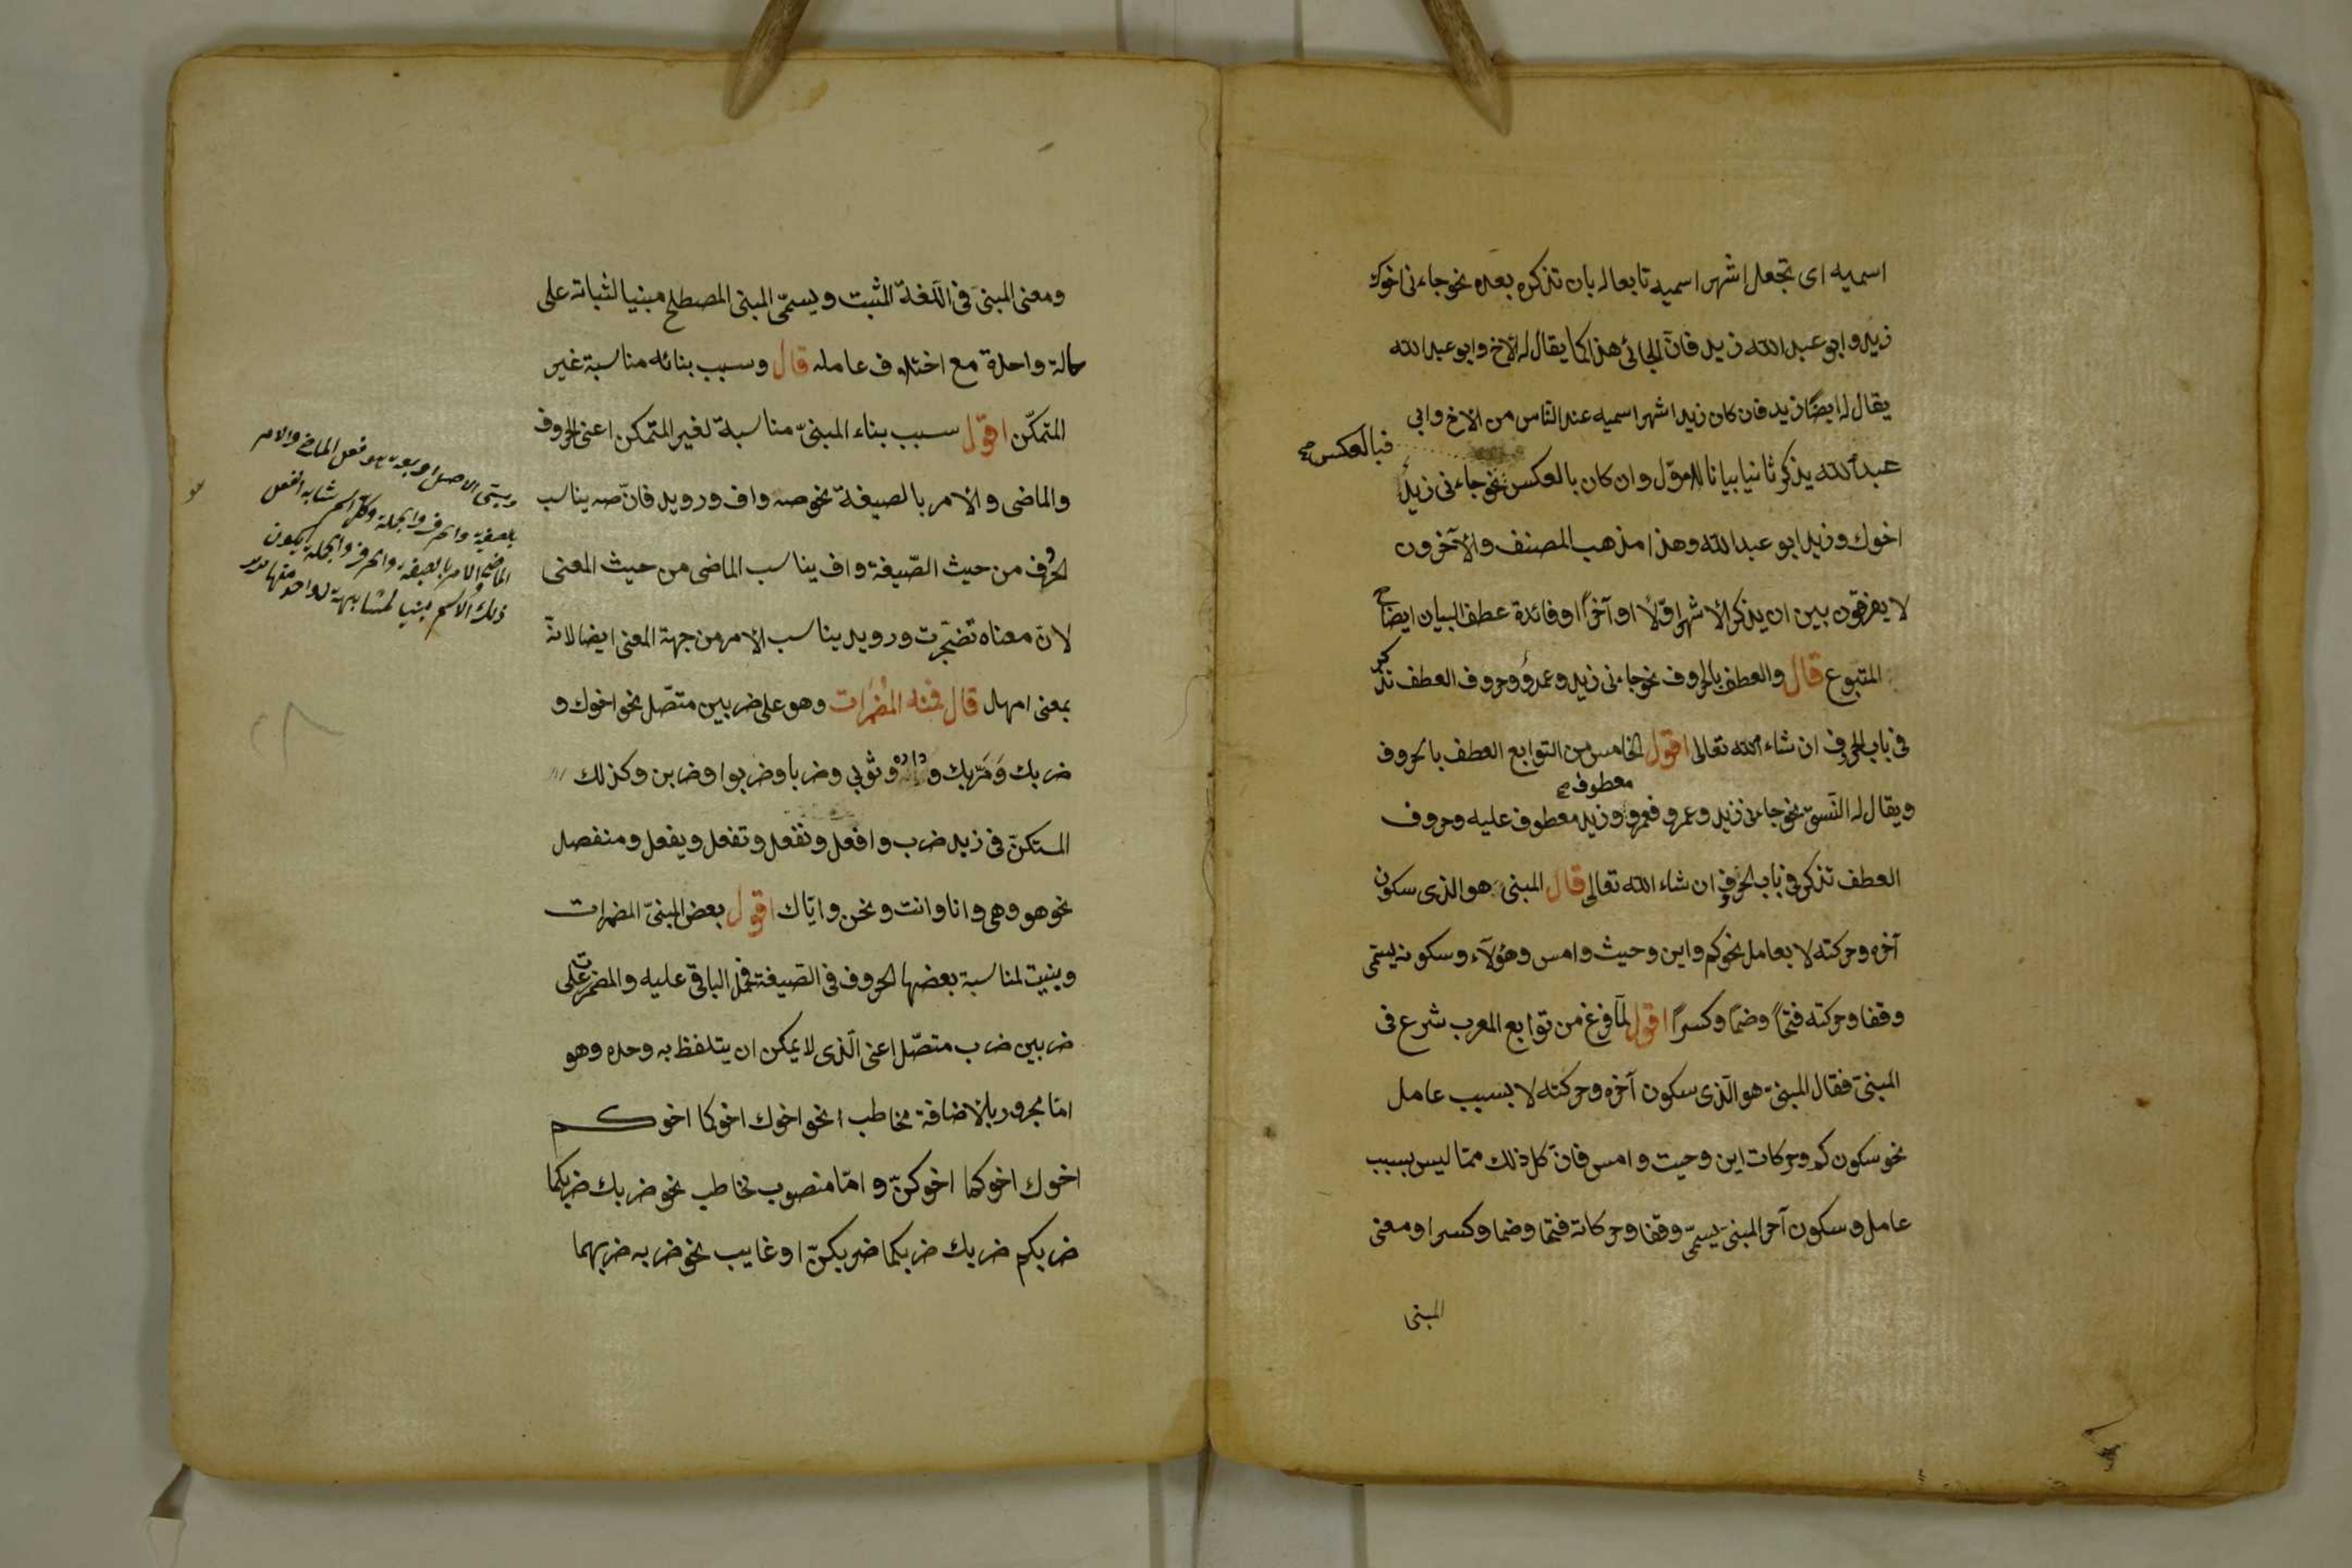 اسميه اى تجعل اشهر اسميه تابعا له بان تذكره بعده نحو جاءنى اخوك
زيد وابو عبد الله زيد فانّ الجائى هذا كما يقال له الاخ وابو عبد الله
يقال له ايضًا زيد فان كان زيدا شهر اسميه عند الناس من الاخ وابى
فبالعكس صح
عبد الله يذكر ثانيا بيانا للاوّل وان كان بالعكس نحو جاءنى زيدٌ
اخوك وزيد ابو عبد الله وهذا مذهب المصنف والآخرون
لا يفرقون بين ان يذكر الاشهر اوّلًا او آخرًا وفائدة عطف البيان ايضاح
المتبوع قال والعطف بالحروف نحو جاءنى زيد وعمرو وحروف العطف تذكر
فى باب الحروف ان شاء الله تعالى اقول الخامس من التوابع العطف بالحروف
معطوف صح
ويقال له النّسق نحو جاءنى زيد وعمرو فعمرو وزيد معطوف عليه وحروف
العطف تذكر فى باب الحروف ان شاء الله تعالى قال المبنى هو الذى سكون
آخره وحركته لا بعامل نحو كم واين وحيث وامس وهؤلآء وسكونه يسمى
وقفا وحركته فتحًا وضمًا وكسرًا اقول لمّا فرغ من توابع المعرب شرع فى
المبنىّ فقال المبنىّ هو الّذى سكون آخره وحركته لا بسبب عامل
نحو سكون كم وحركات اين وحيث وامس فانّ كل ذلك ممّا ليس بسبب
عامل وسكون آخر المبنى يسمّى وقفا وحركاته فتحا وضما وكسرا ومعنى
المبنى
ومعنى المبنى فى اللّغة المثبت ويسمّى المبنى المصطلح مبنيا لثباته على
حالة واحدة مع اختلاف عامله قال وسبب بنائه مناسبة غير
المتمكّن اقول سبب بناء المبنىّ مناسبة لغير المتمكن اعنى الحروف
والماضى والامر بالصيغة نحو صه واف ورويد فانّ صه يناسب
الحروف من حيث الصّيغة واف يناسب الماضى من حيث المعنى
لانّ معناه تضجّرت ورويد يناسب الامر من جهة المعنى ايضا لانه
بمعنى امهل قال فمنه المُضْمَرات وهو على ضربين متصّل نحو اخوك و
ضربك وَمَرّ بك وداره وثوبى وضربا وضربوا وضربن وكذلك
المستكنّ فى زيد ضرب وافعل ونفعل وتفعل ويفعل ومنفصل
نحو هو وهى وانا وانت ونحن وايّاك اقول بعض المبنىّ المضمرات
وبنيت لمناسبة بعضها الحروف فى الصّيغة فحمل الباقى عليه والمضمرات على
ضربين ضرب متصّل اعنى الّذى لا يمكن ان يتلفظ به وحده وهو
امّا مجرور بالاضافة مخاطب نحو اخوك اخوكما اخوكم
اخوك اخوكما اخوكنّ وامّا منصوب مخاطب نحو ضربك ضربكما
ضربكم ضربك ضربكما ضربكنّ او غايب نحو ضربه ضربهما
فعل الماضى والامر
والحرف والجملة وكل اسم شابه الفعل
الماضى والامر بالصيغة والحرف والجملة يكون
ذلك الاسم مبنيا لمشابهة لواحد منها